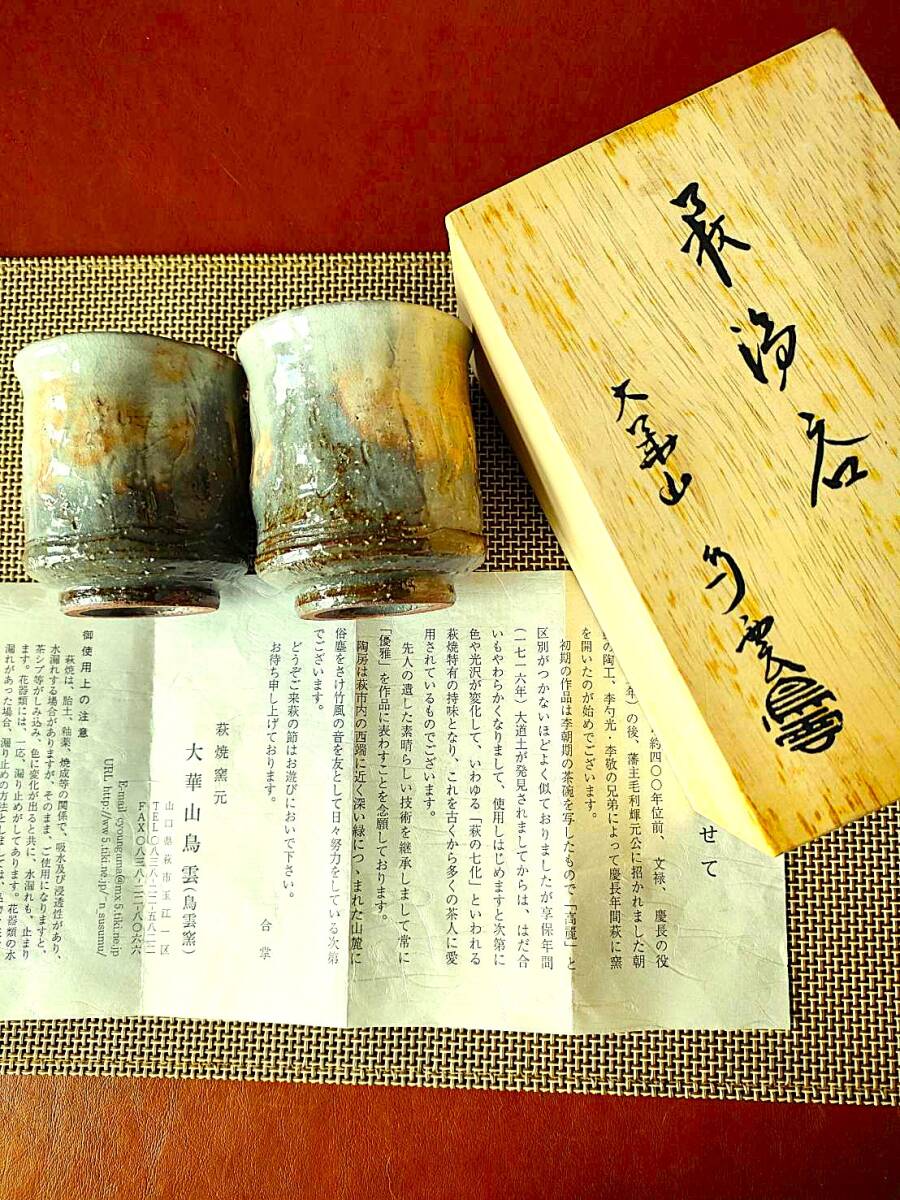 萩湯呑
大華山
鳥雲
せて
約四〇〇年位前、文禄、慶長の役
年)の後、藩主毛利輝元公に招かれました朝
の陶工、李勺光・李敬の兄弟によって慶長年間萩に窯
を開いたのが始めでございます。
初期の作品は李朝期の茶碗を写したもので「高麗」と
区別がつかないほどよく似ておりましたが享保年間
(一七一六年)大道土が発見されましてからは、はだ合
いもやわらかくなりまして、使用しはじめますと次第に
色や光沢が変化して、いわゆる「萩の七化」といわれる
萩焼特有の持味となり、これを古くから多くの茶人に愛
用されているものでございます。
先人の遺した素晴らしい技術を継承しまして常に
「優雅」を作品に表わすことを念願しております。
陶房は萩市内の西端に近く深い緑につゝまれた山麓に
俗塵をさけ竹風の音を友として日々努力をしている次第
でございます。
どうぞご来萩の節はお遊びにおいで下さい。
お待ち申し上げております。
合掌
萩焼窯元
大華山鳥雲(鳥雲窯)
山口県萩市玉江一区
TEL〇八三八-二二-五八二二
FAX〇八三八-二二-八〇六六
E-mail cyoungama@mx5.tiki.ne.jp
URL http://ww5.tiki.ne.jp/~n_susumu/
御使用上の注意
萩焼は、胎土、釉薬、焼成等の関係で、吸水及び浸透性があり、
水漏れする場合がありますが、そのまま、ご使用になりますと、
茶シブ等がしみ込み、色に変化が出ると共に、水漏れも、止まり
ます。花器類には、一応、漏り止めがしてあります。花器類の水
漏れがあった場合、漏り止めの方法としましては、